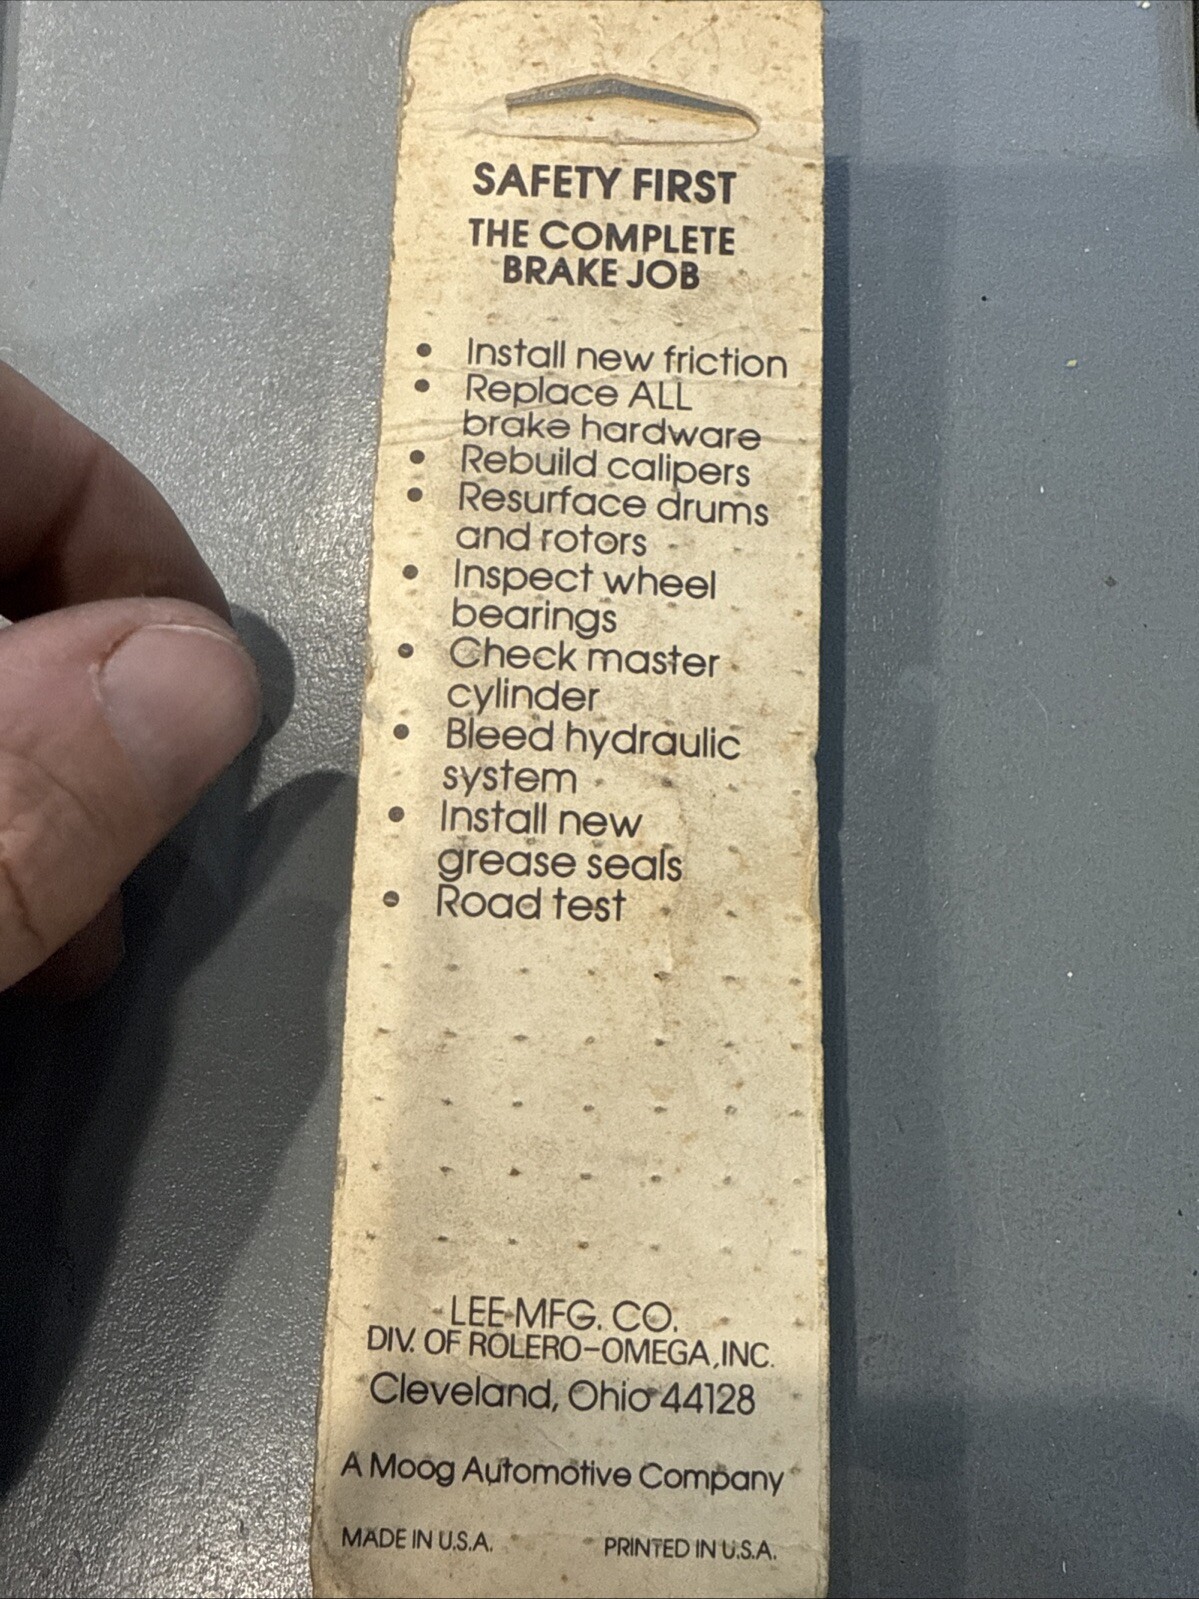 SAFETY FIRST
THE COMPLETE
BRAKE JOB
• Install new friction
• Replace ALL
brake hardware
• Rebuild calipers
• Resurface drums
and rotors
• Inspect wheel
bearings
• Check master
cylinder
• Bleed hydraulic
system
• Install new
grease seals
• Road test
LEE MFG. CO.
DIV. OF ROLERO-OMEGA, INC.
Cleveland, Ohio 44128
A Moog Automotive Company
MADE IN U.S.A. PRINTED IN U.S.A.